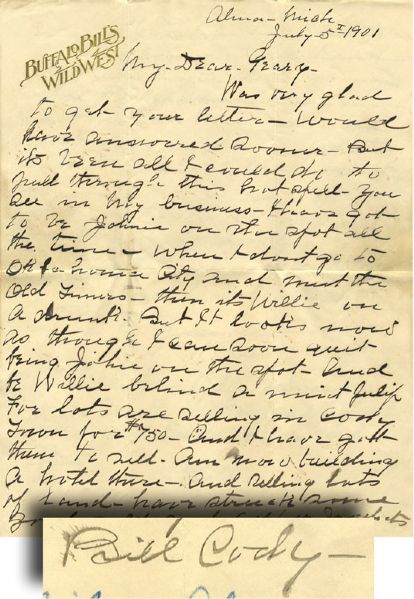 Alma - Mich
July 5th 1901
BUFFALO BILL'S
WILD WEST
My Dear Geary -
Was very glad
to get your letter - Would
have answered sooner - But
its been all I could do to
pull through this hot spell - You
see in my business - I have got
to be Johnie on the spot all
the time - When I dont go to
Oklahoma City and meet the
Old Timers - then its Willie on
a drunk. But it looks now
as though I can soon quit
being Johie on the spot. And
be Willie behind a mint Julip
For lots are selling in Cody
Town for $750 - And I have got
them to sell. Am now building
a hotel there - And selling lots
of land - have struck some
Bill Cody -